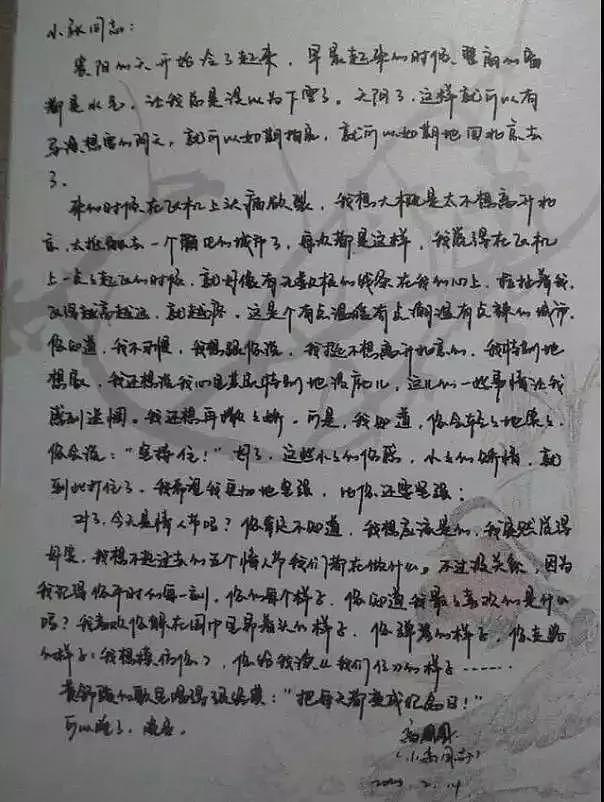 小张同志:
襄阳的天开始冷了起来,早晨起来的时候,整扇的窗
都是水气,让我总是误以为下雪了。天阴了,这样就可以有
导演想要的阴天,就可以如期拍摄,就可以如期地回北京去
了。
来的时候在飞机上头痛欲裂,我想大概是太不想离开北
京,去抵触去一个陌生的城市了,每次都是这样,我觉得在飞机
上一点点起飞的时候,就好像有无数根的线系在我的心上,拉扯着我,
飞得越高越远,就越疼。这是个有点温暖有点潮湿有点辣的城市,
你知道,我不习惯,我想跟你说,我挺不想离开北京的,我特别地
想家,我还想说我心里其实特别地没底儿,这儿的一些事情让我
感到迷惘。我还想再撒撒娇。可是,我知道,你会轻轻地
你会说:"坚持住!"好了,这些小小的伤感,小小的矫情,就
到此打住了。我希望我更加地坚强,比你还要坚强;
对了,今天是情人节吗?你肯定不知道,我想应该是的,我突然觉得
我想不起过去的五个情人节我们都在做什么。不过没关系,因为
我记得你平时的每一刻,你的每个样子,你知道我最喜欢的是什么
吗?我喜欢你躲在围巾里昂着头的样子,你弹琴的样子,你走路
的样子(我想模仿你),你给我读《我们仨》的样子……
黄舒骏的歌里唱得很煽情:"把每天都变成纪念日!"
可以睡了,晚安。
高圆圆
(小高同志)
2.14